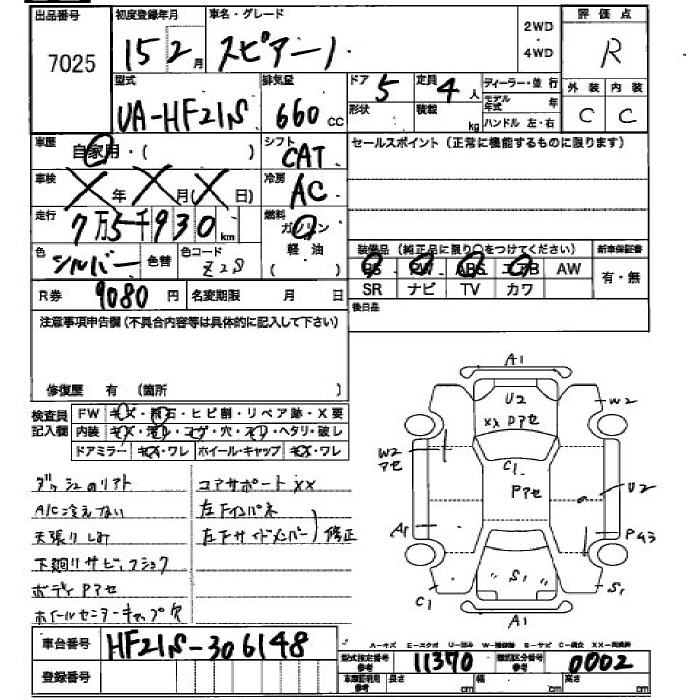 出品番号 初度登録年月 車名・グレード 評価点
7025 15 2月 スピアーノ 2WD・4WD R
型式 排気量 ドア 5 定員 4人 ディーラー・並行 外装 内装
UA-HF21S 660cc 形状 積載 kg モデル年式 年 C C
ハンドル 左・右
車歴 自家用・( ) シフト CAT セールスポイント（正常に機能するものに限ります）
車検 X年X月(X日) 冷房 AC
走行 7万5千930km 燃料 ガソリン 軽油 ( )
色 シルバー 色替 色コード Z2S 装備品（純正品に限り○をつけてください） 新車保証書
PS PW ABS エアB AW 有・無
R券 9080円 名変期限 月 日 SR ナビ TV カワ
注意事項申告欄（不具合内容等は具体的に記入して下さい） 後日品
修復歴 有 （箇所 ）
検査員記入欄 FW キズ・飛石・ヒビ割・リペア跡・X要
内装 キズ・汚レ・コゲ・穴・スリ・ヘタリ・破レ
ドアミラー キズ・ワレ ホイール・キャップ キズ・ワレ
コアサポートXX
A/C冷えない 左Fインパネ
天張りしみ 左Fサイドメンバー 修正
下廻りサビ
ボディPアセ
ホイールセンターキャップ欠
A1
U2
XX Pアセ
W2
W2
アセ
C1
Pアセ
U2
A1
Pキ3
S1
C1
S1
A1
A-キズ E-エクボ U-凹み W-補修跡 S-サビ C-腐食 XX-交換済
車台番号 HF21S-306148 型式指定番号 参考 11370 類別区分番号 参考 0002
登録番号 車庫証明用 参考 長さ cm 幅 cm 高さ cm